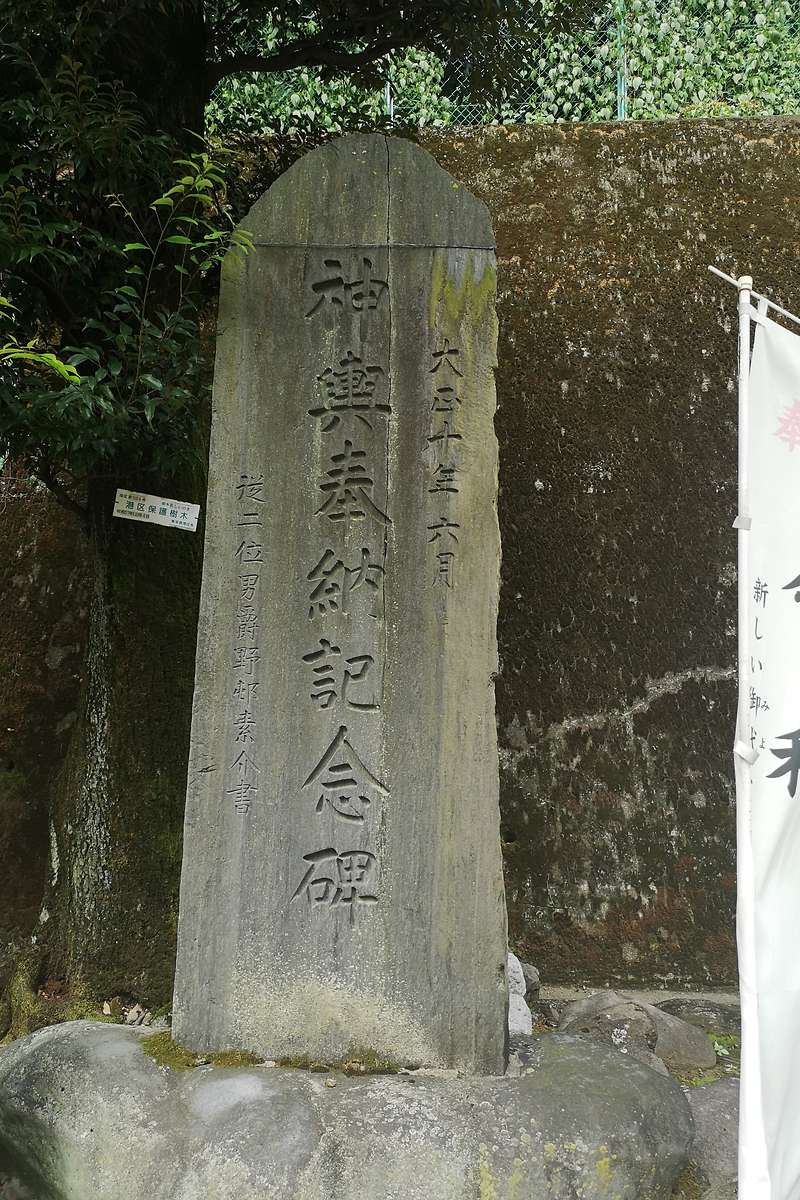 大正十年六月
神輿奉納記念碑
従二位男爵野邨素介書
港区保護樹木
奉
新しい御代
みよ
和